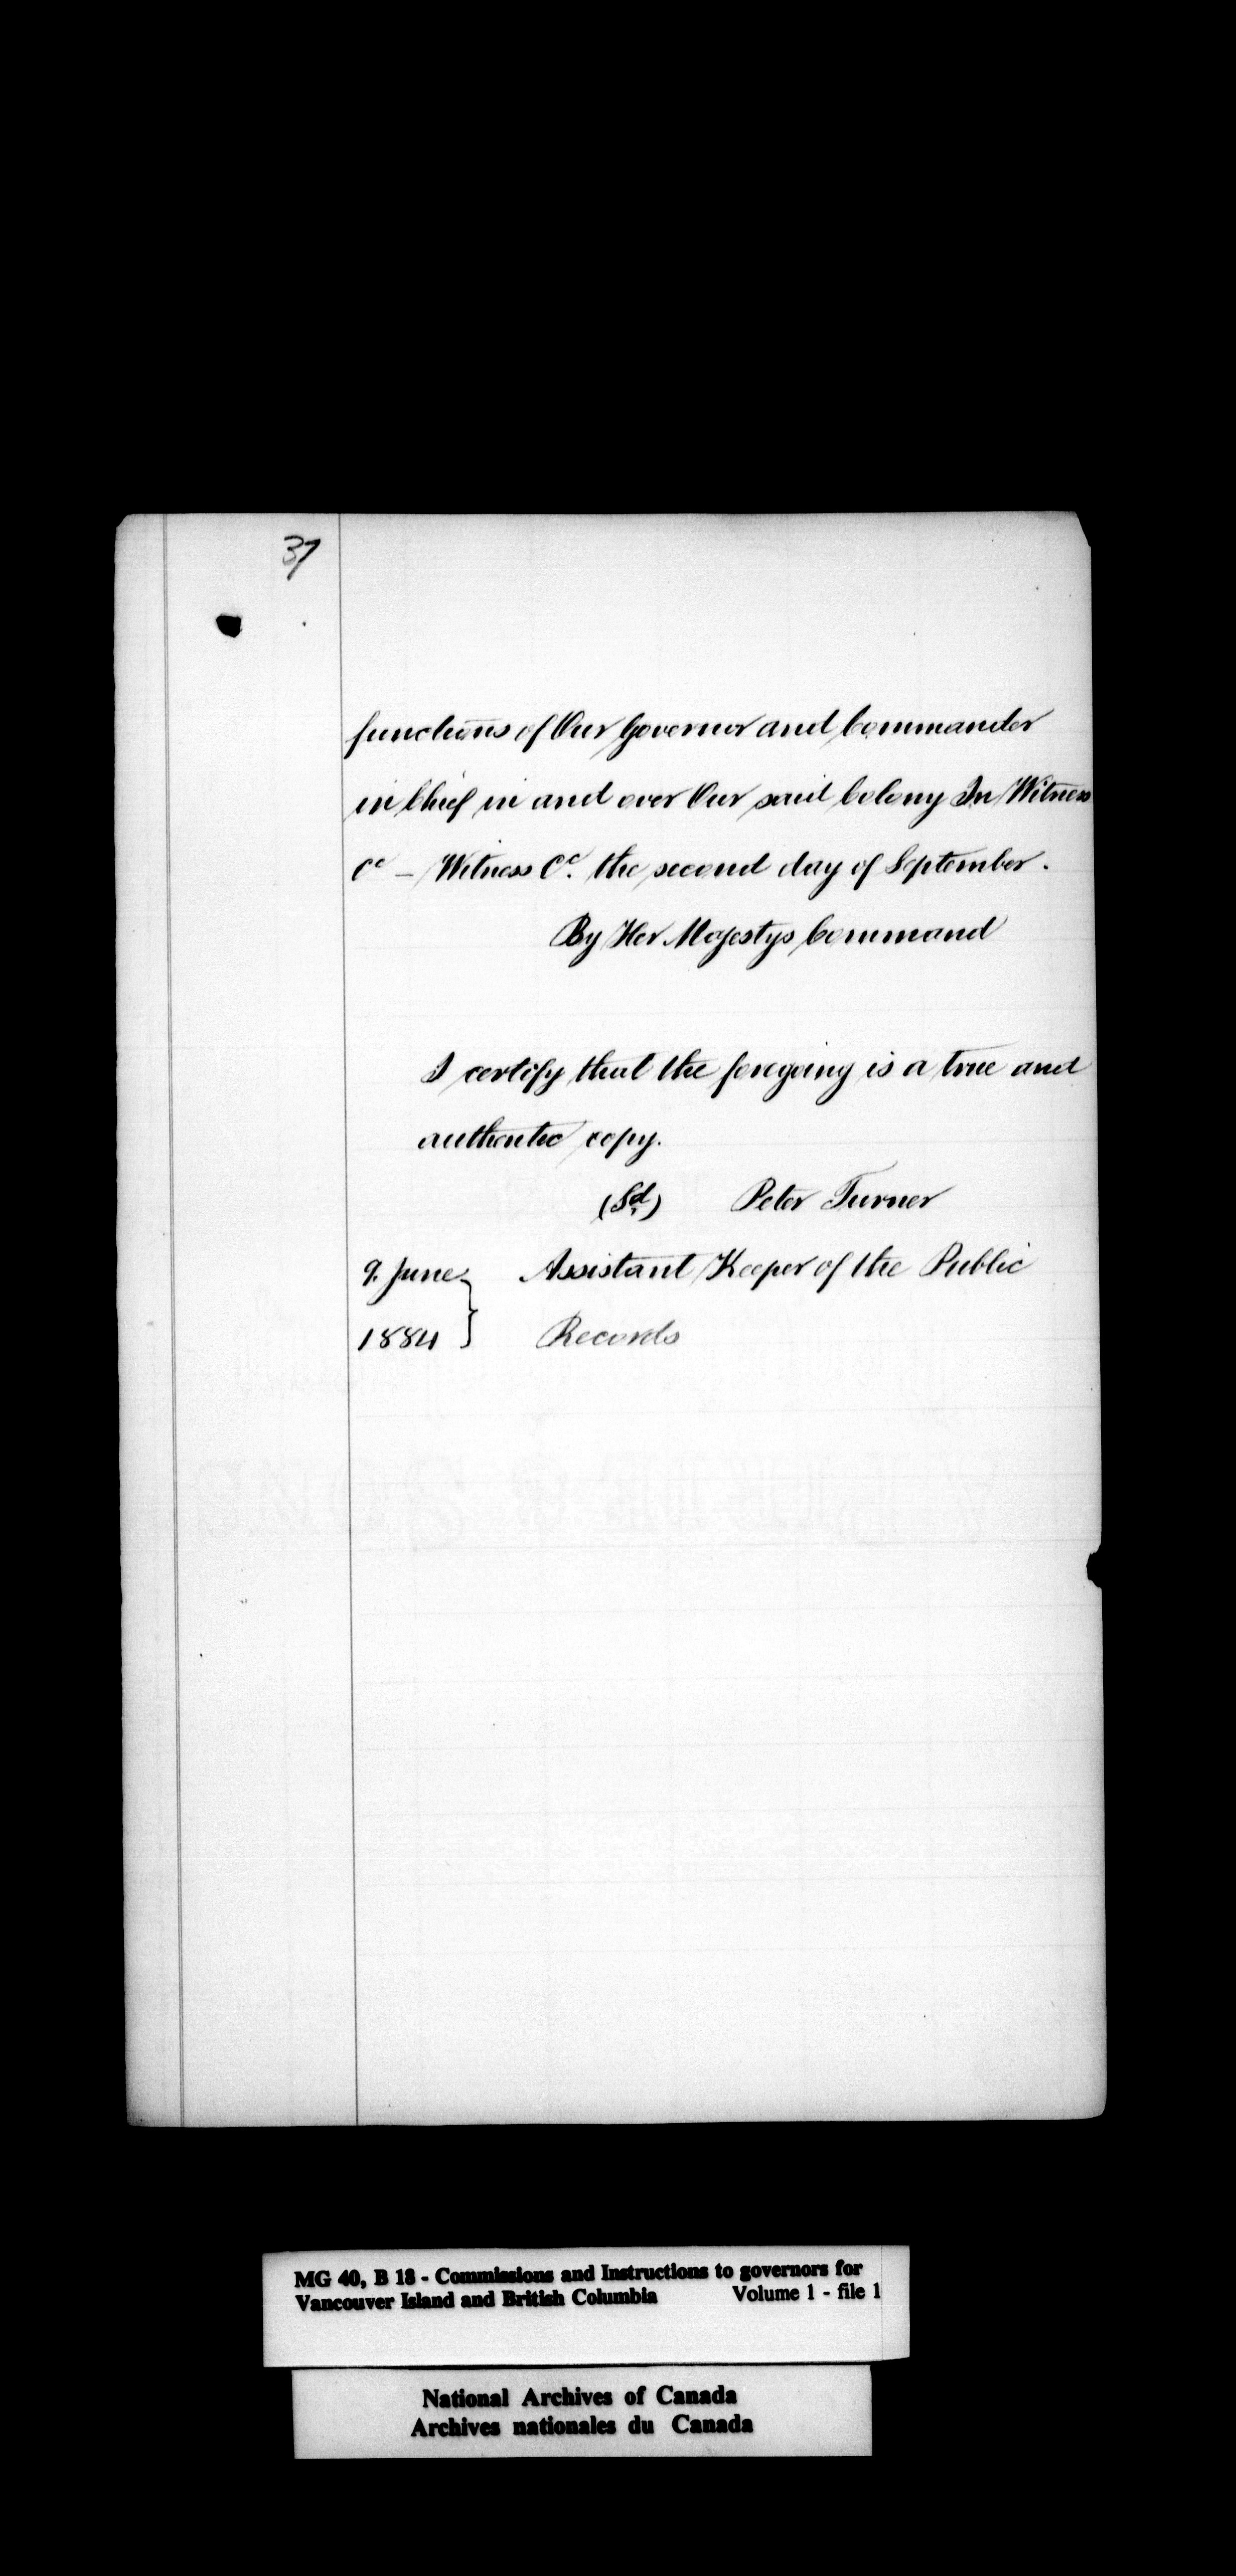 37
functions of Our Governor and Commander
in Chief in and over Our said Colony In Witness
&c - Witness &c. the second day of September.
By Her Majestys Command
I certify that the foregoing is a true and
authentic copy.
(Sd.) Peter Turner
9. June } Assistant Keeper of the Public
1884 } Records
MG 40, B 18 - Commissions and Instructions to governors for
Vancouver Island and British Columbia Volume 1 - file 1
National Archives of Canada
Archives nationales du Canada